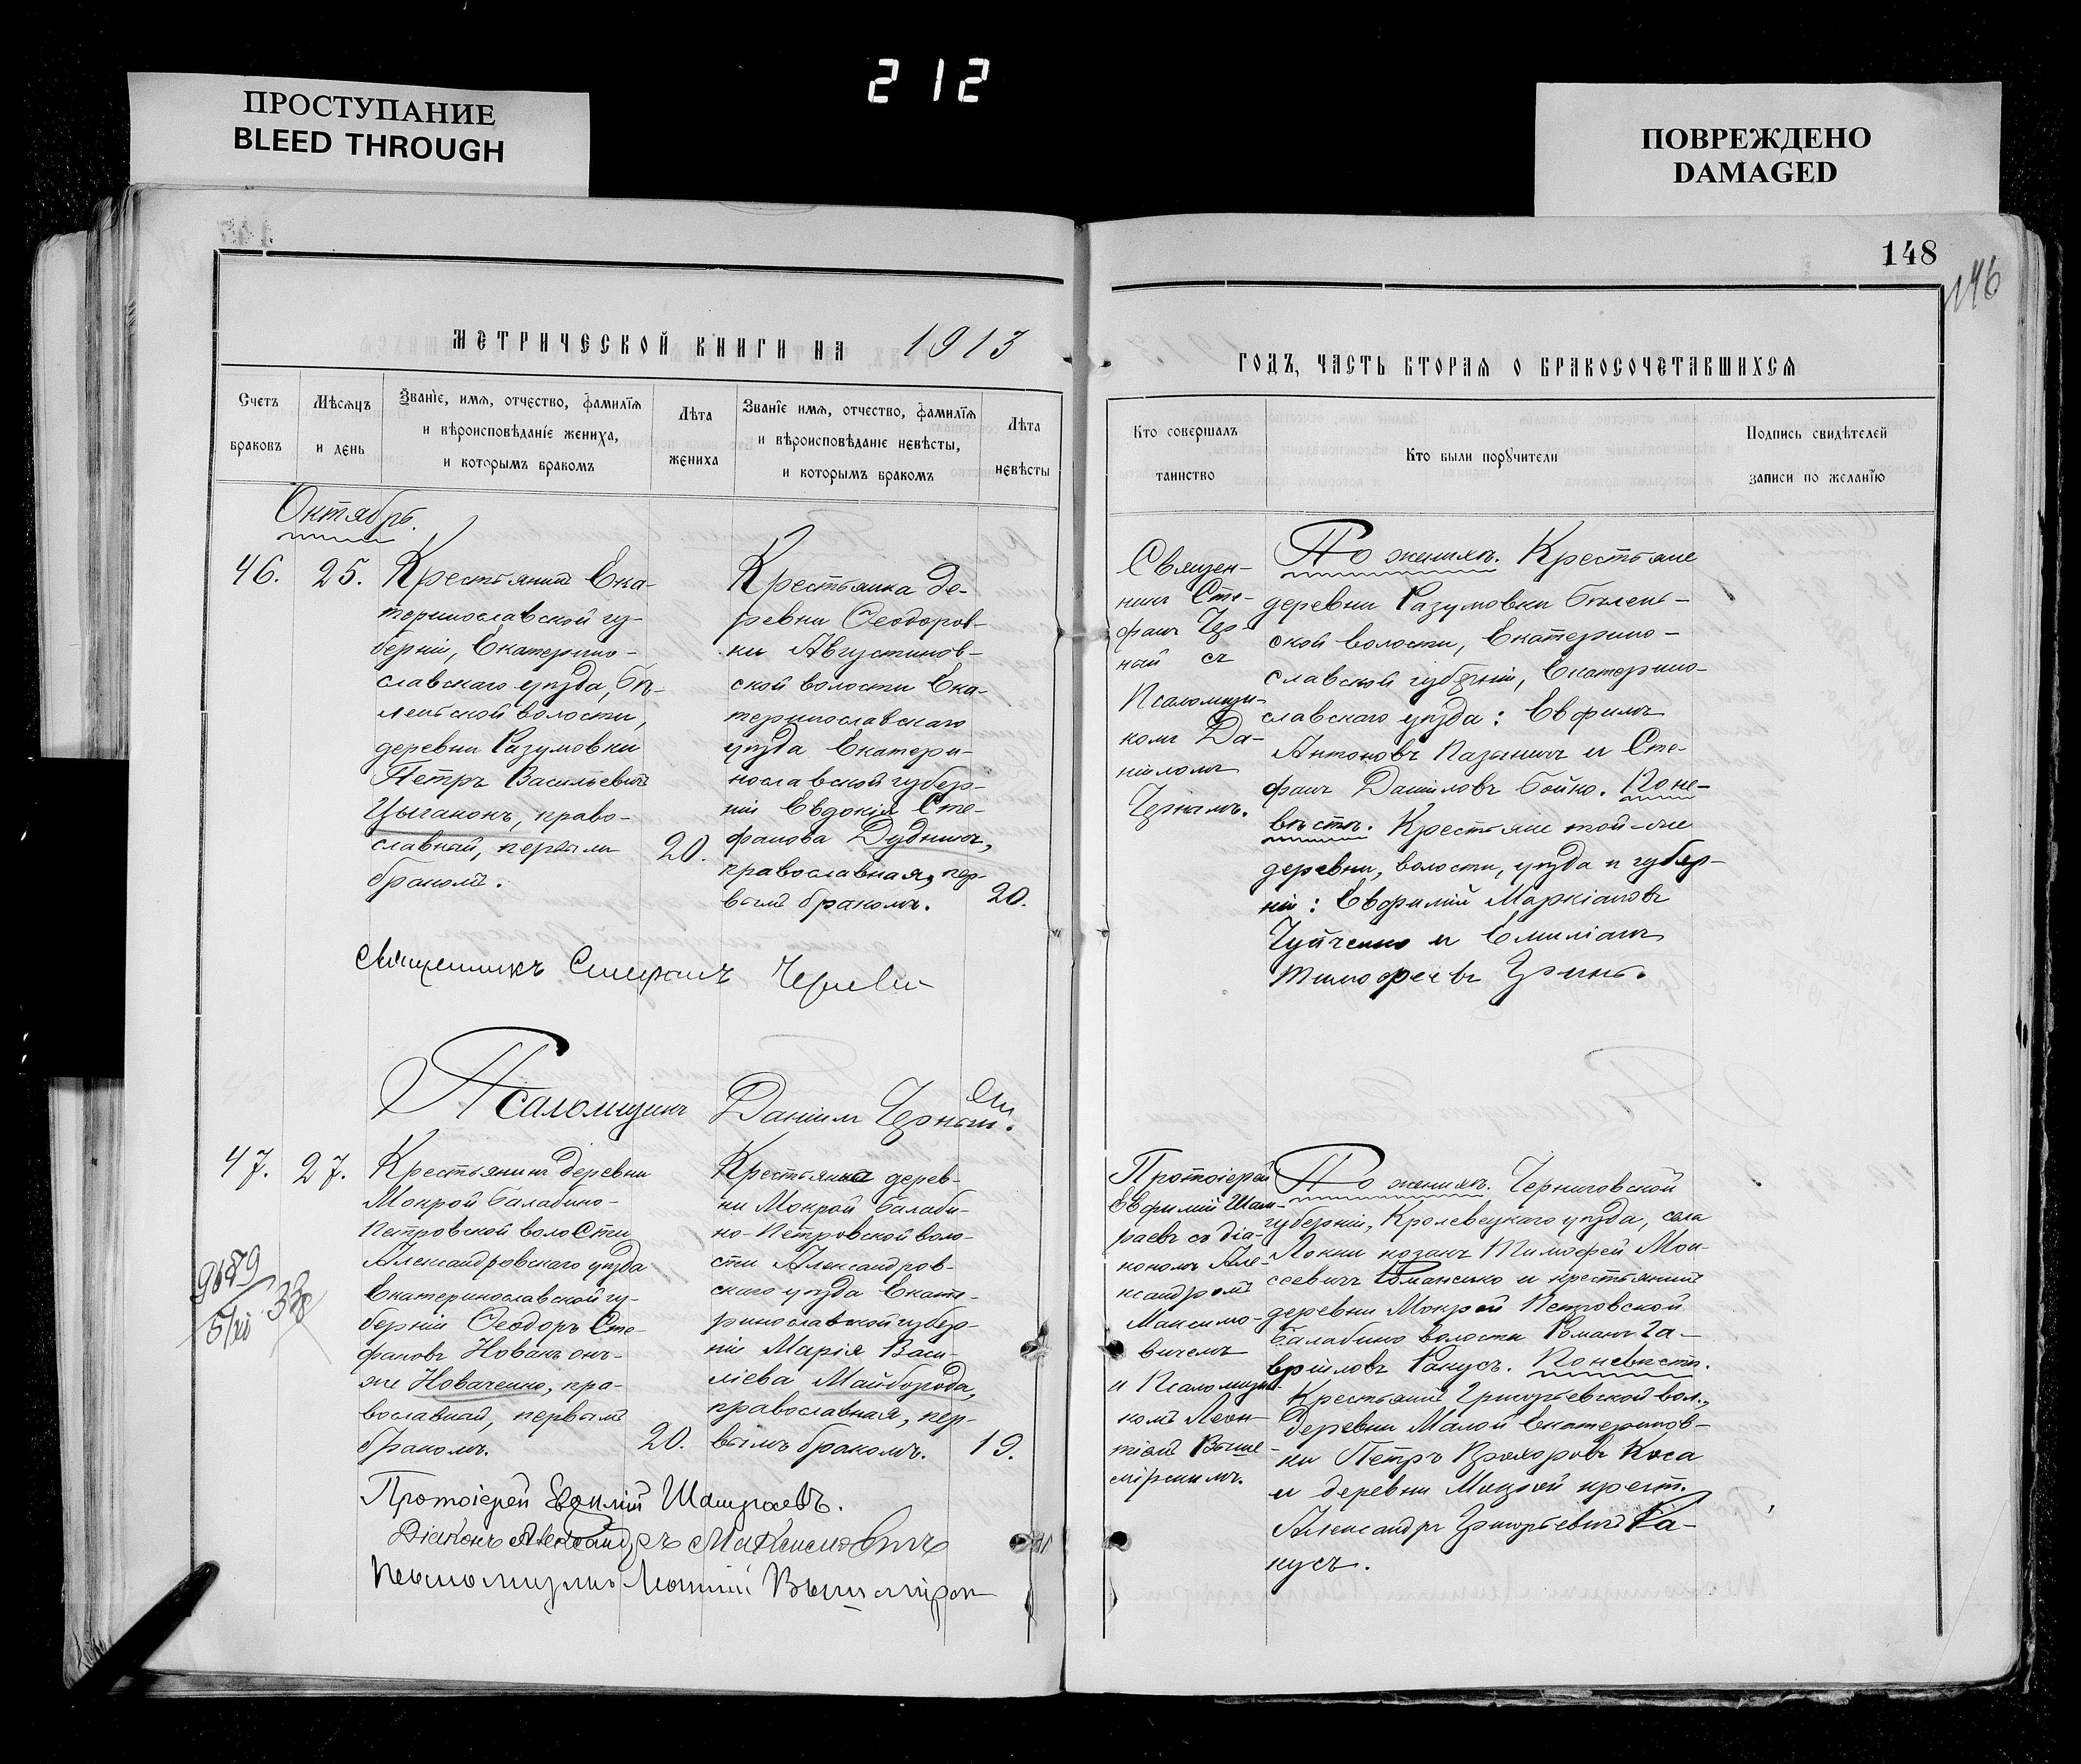 212
ПРОСТУПАНИЕ
BLEED THROUGH
ПОВРЕЖДЕНО
DAMAGED
148
146
МЕТРИЧЕСКОЙ КНИГИ НА 1913
ГОДЪ, ЧАСТЬ ВТОРАЯ О БРАКОСОЧЕТАВШИХСЯ
Счетъ
браковъ
Мѣсяцъ
и день
Званіе, имя, отчество, фамилія
и вѣроисповѣданіе жениха,
и которымъ бракомъ
Лѣта
жениха
Званіе имя, отчество, фамилія
и вѣроисповѣданіе невѣсты,
и которымъ бракомъ
Лѣта
невѣсты
Кто совершалъ
таинство
Кто были поручители
Подпись свидѣтелей
записи по желанію
Октябрь.
46.
25.
Крестьянинъ Ека-
теринославской гу-
берніи, Екатерино-
славскаго уѣзда, Бѣ-
леньской волости,
деревни Разумовки
Петръ Васильевичъ
Цыганокъ, право-
славный, первымъ
бракомъ.
20.
Крестьянка де-
ревни Ѳеодоров-
ки Августинов-
ской волости Ека-
теринославскаго
уѣзда Екатери-
нославской губер-
ніи Евдокія Сте-
фанова Дудникъ,
православная, пер-
вымъ бракомъ.
20.
Священ-
никъ Сте-
фанъ Чер-
ный съ
Псаломщи-
комъ Да-
ніиломъ
Чернымъ.
По женихѣ. Крестьяне
деревни Разумовки Бѣлень-
ской волости, Екатерино-
славской губерніи, Екатерино-
славскаго уѣзда: Евфимъ
Антоновъ и Сте-
фанъ Даниловъ Бойко. По не-
вѣстѣ. Крестьяне той-же
деревни, волости, уѣзда и губер-
ніи: Евфимій Маркіановъ
Чуйченко и Емиліанъ
Тимофеевъ
Священникъ Стефанъ
Псаломщикъ Даніилъ Черный.
47.
27.
Крестьянинъ деревни
Мокрой Балабино-
Петровской волости
Александровскаго уѣзда
Екатеринославской гу-
берніи Ѳеодоръ Сте-
фановъ Новакъ онъ-
же Новаченко, пра-
вославный, первымъ
бракомъ.
20.
Крестьянка дерев-
ни Мокрой Балаби-
но-Петровской воло-
сти Александров-
скаго уѣзда Екате-
ринославской губер-
ніи Марія Васи-
ліева Майборода,
православная, пер-
вымъ бракомъ.
19.
Протоіерей
Евфимій Шам-
раевъ со діа-
кономъ Але-
ксандромъ
Максимо-
вичемъ
и Псаломщи-
комъ Леон-
тіемъ Выше-
мірскимъ.
По женихѣ. Черниговской
губерніи, Кролевецкаго уѣзда, села
Локни козакъ Тимофей Мои-
сеевичъ Романенко и крестьянинъ
деревни Мокрой Петровской
Балабино волости Романъ Га-
вріиловъ Ракусъ. По невѣстѣ.
Крестьяне Григорьевской вол.,
деревни Малой Екатеринов-
ки Петръ Прохоровъ Коса
и деревни Мокрой крест.
Александръ Григорьевичъ Ра-
кусъ.
Протоіерей Евфимій Шамраевъ.
Діаконъ Александръ Максимовичъ
Псаломщикъ Леонтій